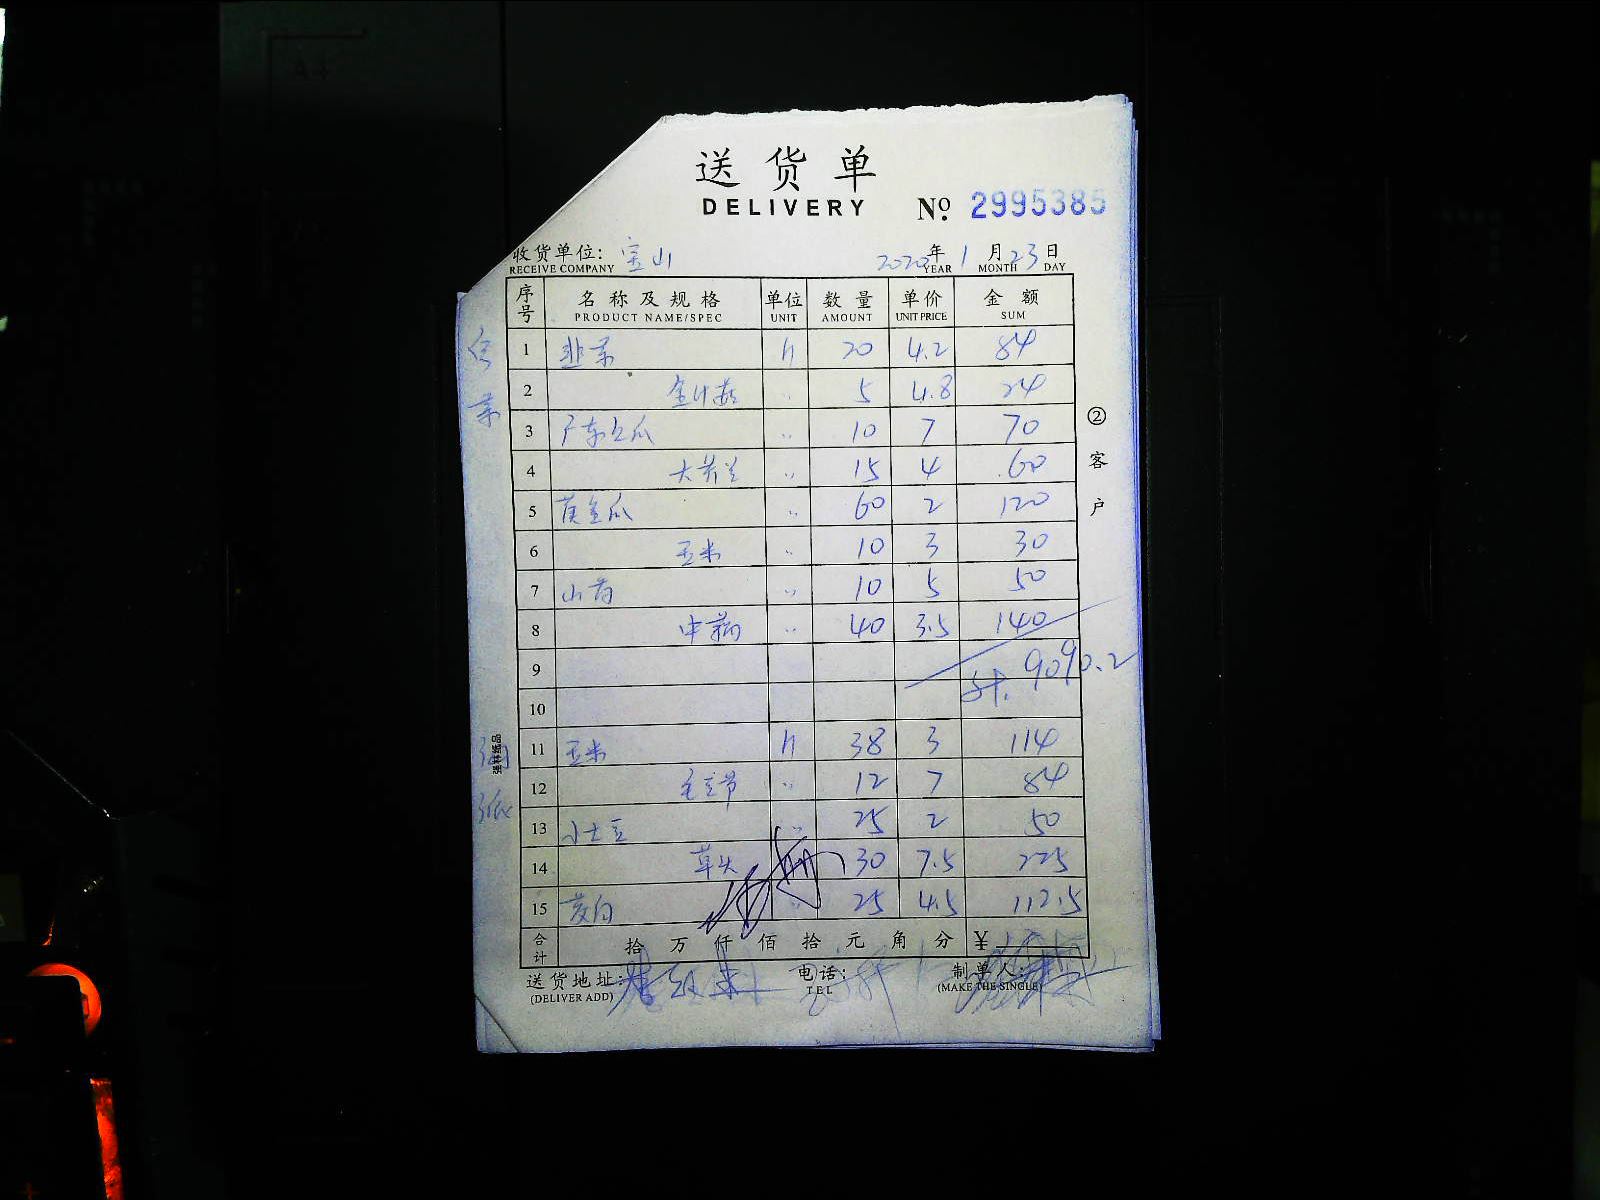 送货单
DELIVERY № 2995385
收货单位: 宝山 2020年1月23日
RECEIVE COMPANY YEAR MONTH DAY
序号 名称及规格 单位 数量 单价 金额
PRODUCT NAME/SPEC UNIT AMOUNT UNIT PRICE SUM
1 韭菜 20 4.2 84
2 金针菇 〃 5 4.8 24
3 广东丝瓜 〃 10 7 70
4 大芥兰 〃 15 4 60
5 黄金瓜 〃 60 2 120
6 玉米 〃 10 3 30
7 山药 〃 10 5 50
8 中菇 〃 40 3.5 140
9 计. 9090.2
10
11 玉米 38 3 114
12 毛豆节 〃 12 7 84
13 小土豆 〃 25 2 50
14 草头 30 7.5 225
15 茭白 〃 25 4.5 112.5
合计 拾 万 仟 佰 拾 元 角 分 ¥
送货地址: 电话: 制单人:
(DELIVER ADD) TEL (MAKE THE SINGLE)
② 客户
强林纸品